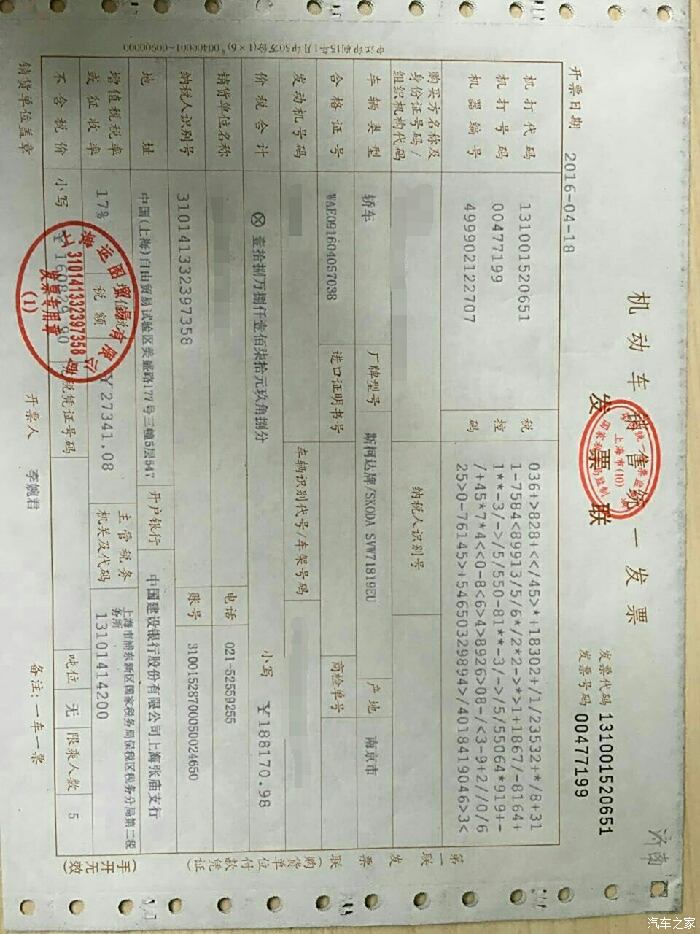 机动车销售统一发票
发票联
发票代码 131001520651
发票号码 00477199
济南
开票日期 2016-04-18
机打代码 131001520651
机打号码 00477199
机器编号 499902122707
税控码
036+>828+<</45>*+18302+/1/23532+*/8+31
1-7584<89913/5/6*/2*2->*>1+1867/-8164+
1**-3/->/5/550-81**-3/->/5/55064*919+-
/+45*7*4<<0-8<6>4>8926>08-/<3-9+2//0/6
25>0-76145>+54650329894>/40184190 46>3<
购买方名称及身份证号码/组织机构代码
纳税人识别号
车辆类型 轿车 厂牌型号 斯柯达牌/SKODA SVW71819EU 产地 南京市
合格证号 WAE091604057038 进口证明书号 商检单号
发动机号码 车辆识别代号/车架号码
价税合计 ⊗壹拾捌万捌仟壹佰柒拾元玖角捌分 小写 ￥188170.98
销货单位名称 电话 021-52559255
纳税人识别号 310141332397358 账号 31001528700050024650
地址 中国(上海)自由贸易试验区美盛路177号三幢5层547 开户银行 中国建设银行股份有限公司上海张庙支行
增值税税率或征收率 17% 税额 ￥27341.08 主管税务机关及代码 上海市浦东新区国家税务局保税区税务分局第二税务所 13101414200
不含税价 小写 ￥160829.90 完税凭证号码 吨位 无 限乘人数 5
销货单位盖章 开票人 李婉君 备注：一车一票
第一联 发票联 (购货单位付款凭证)
(手开无效)
310141332397358
发票专用章
(1)
上海市(10)
汽车之家